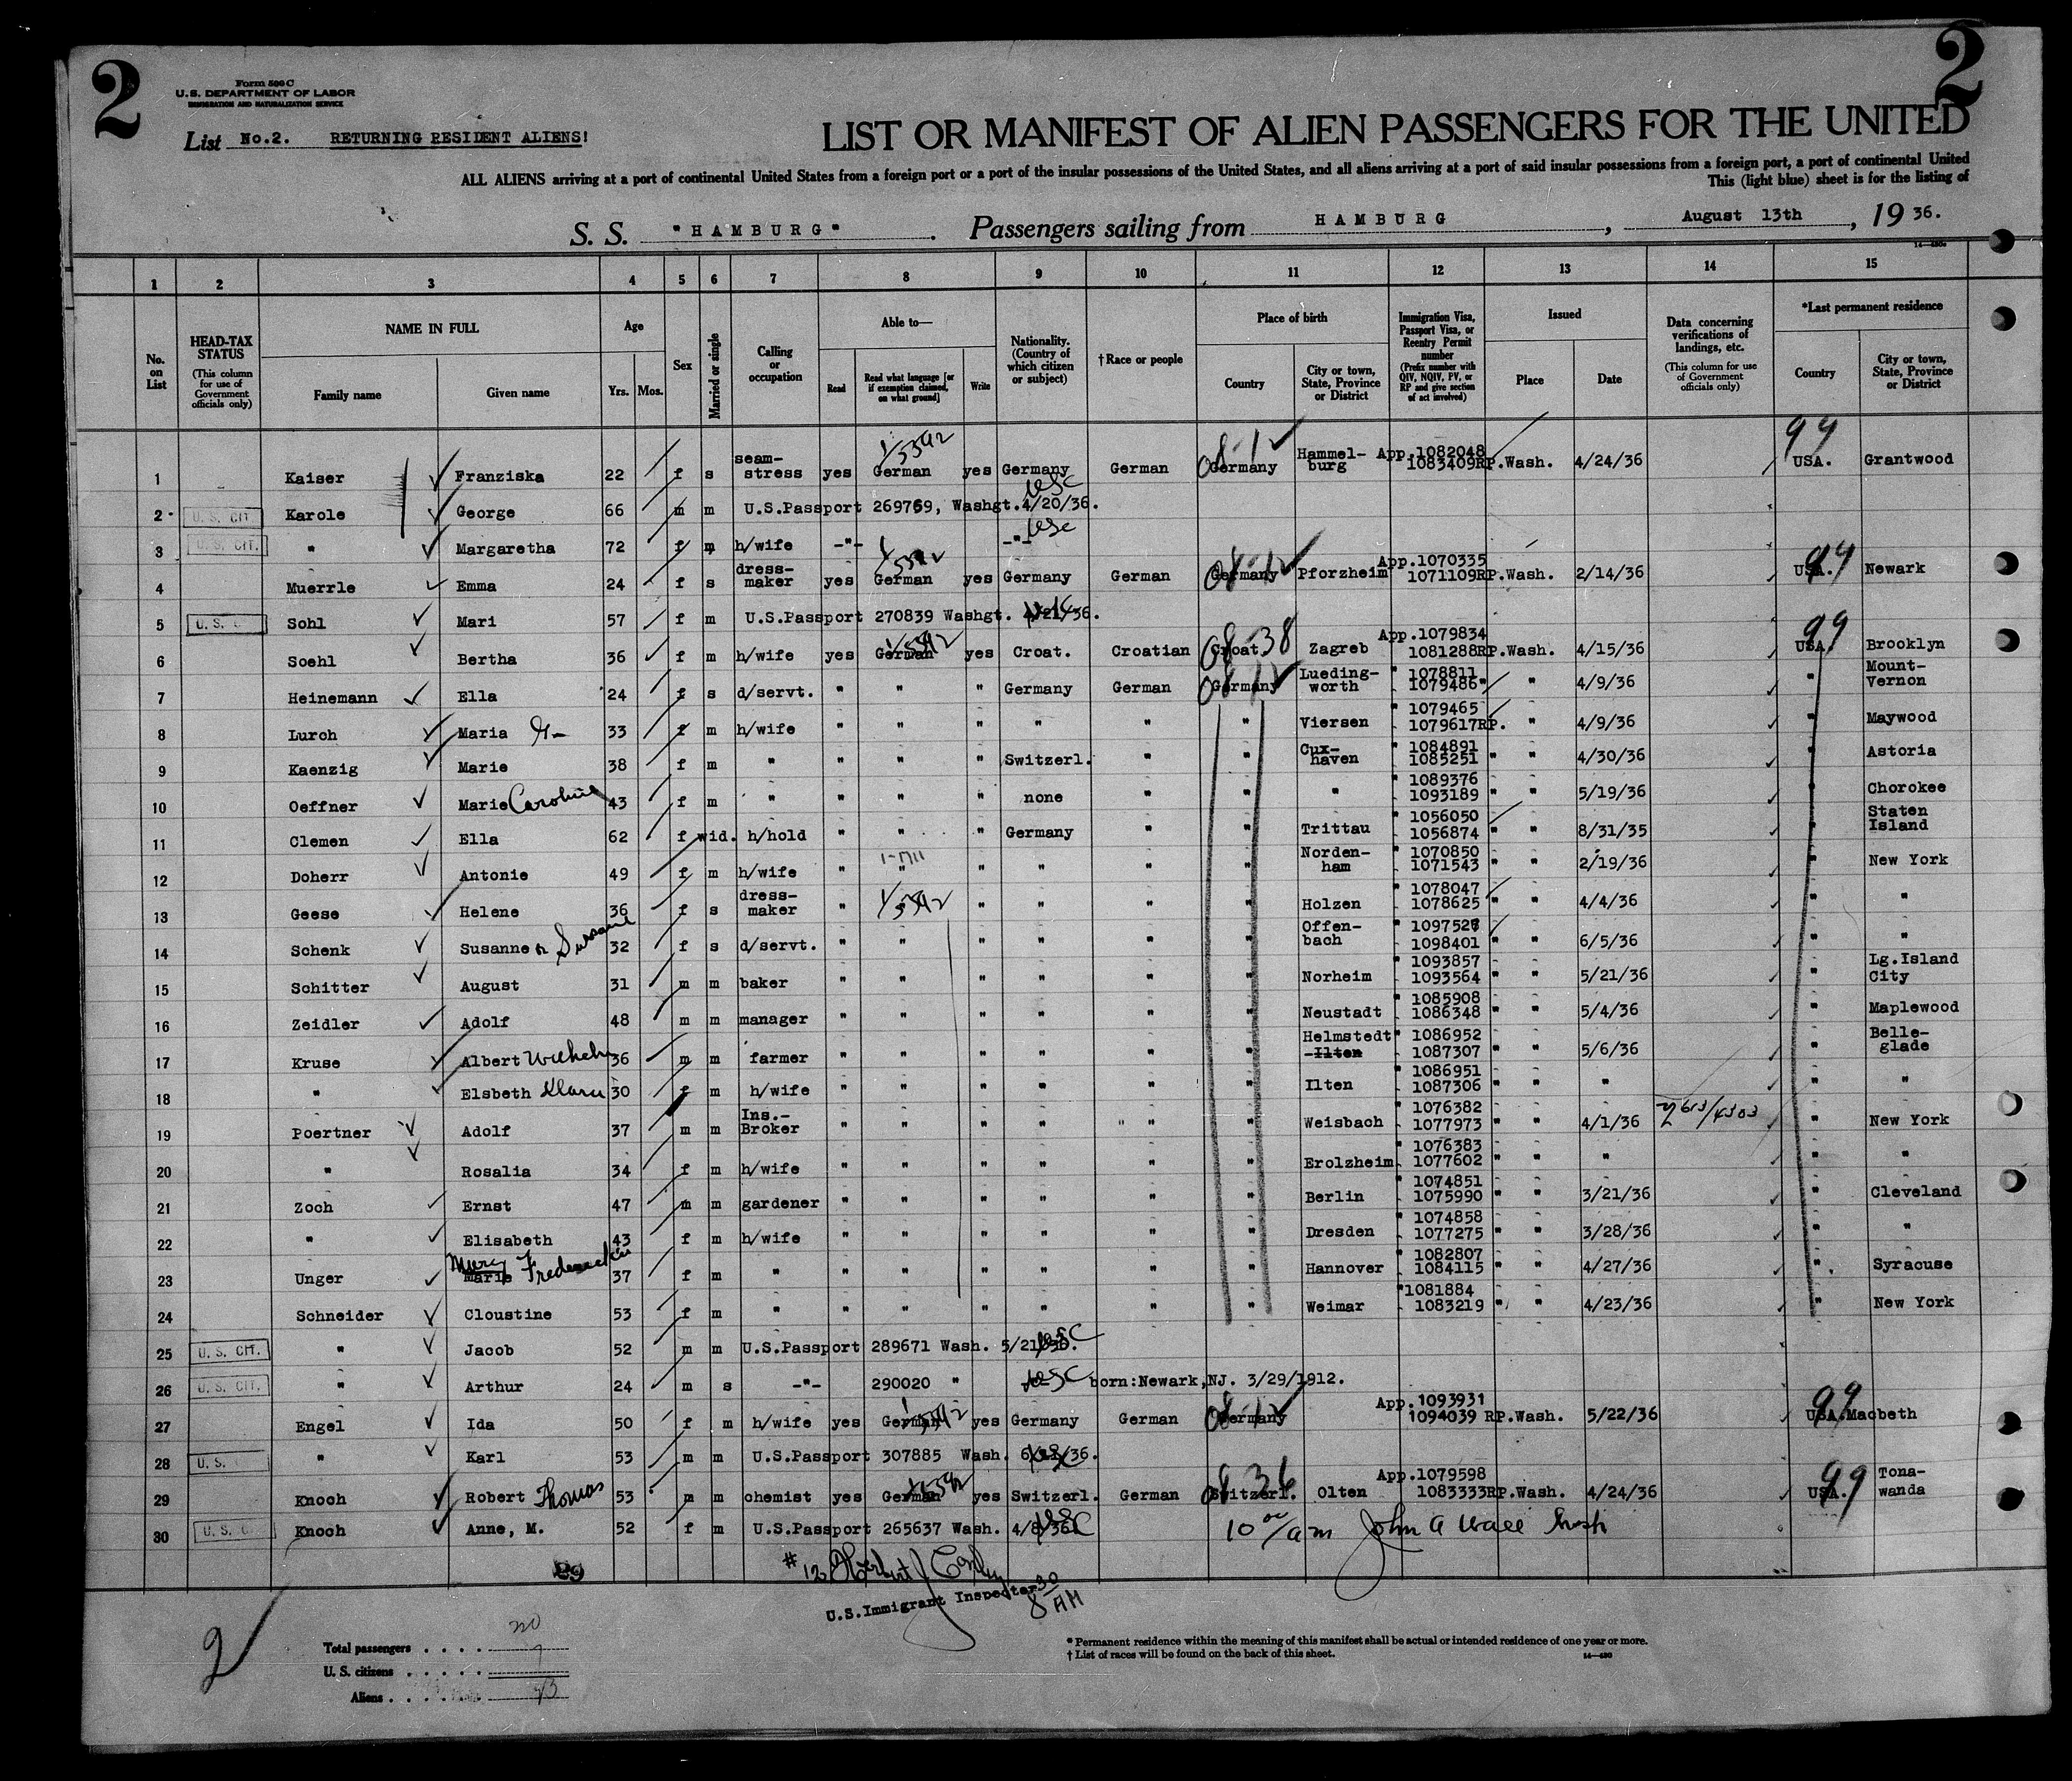 2
2
Form 500 C
U.S. DEPARTMENT OF LABOR
IMMIGRATION AND NATURALIZATION SERVICE
List No.2. RETURNING RESIDENT ALIENS!
LIST OR MANIFEST OF ALIEN PASSENGERS FOR THE UNITED
ALL ALIENS arriving at a port of continental United States from a foreign port or a port of the insular possessions of the United States, and all aliens arriving at a port of said insular possessions from a foreign port, a port of continental United
This (light blue) sheet is for the listing of
S. S. "HAMBURG". Passengers sailing from HAMBURG, August 13th, 19 36.
1 2 3 4 5 6 7 8 9 10 11 12 13 14 15
No. on List
HEAD-TAX STATUS (This column for use of Government officials only)
NAME IN FULL Family name Given name
Age Yrs. Mos.
Sex
Married or single
Calling or occupation
Able to— Read Read what language [or if exemption claimed, on what ground] Write
Nationality. (Country of which citizen or subject)
†Race or people
Place of birth Country City or town, State, Province or District
Immigration Visa, Passport Visa, or Reentry Permit number (Prefix number with QIV, NQIV, PV, or RP and give section of act involved)
Issued Place Date
Data concerning verifications of landings, etc. (This column for use of Government officials only)
*Last permanent residence Country City or town, State, Province or District
1 Kaiser Franziska 22 f s seam-stress yes German yes Germany German Germany Hammel-burg App.1082048 1083409RP.Wash. 4/24/36 USA. Grantwood
2 U. S. CIT. Karole George 66 m m U.S.Passport 269769, Washgt.4/20/36.
3 U. S. CIT. " Margaretha 72 f m h/wife -"- -"-
4 Muerrle Emma 24 f s dress-maker yes German yes Germany German Germany Pforzheim App.1070335 1071109RP.Wash. 2/14/36 USA. Newark
5 U. S. C Sohl Mari 57 f m U.S.Passport 270839 Washgt. 4/21/36.
6 Soehl Bertha 36 f m h/wife yes German yes Croat. Croatian Croat. Zagreb App.1079834 1081288RP.Wash. 4/15/36 USA. Brooklyn
7 Heinemann Ella 24 f s d/servt. " " " Germany German Germany Lueding-worth " 1078811 1079486" " 4/9/36 " Mount-Vernon
8 Lurch Maria 33 f m h/wife " " " " " " Viersen " 1079465 1079617RP. " 4/9/36 " Maywood
9 Kaenzig Marie 38 f m " " " " Switzerl. " " Cux-haven " 1084891 1085251 " " 4/30/36 " Astoria
10 Oeffner Marie Caroline 43 f m " " " " none " " " " 1089376 1093189 " " 5/19/36 " Chorokee
11 Clemen Ella 62 f wid. h/hold " " " Germany " " Trittau " 1056050 1056874 " " 8/31/35 " Staten Island
12 Doherr Antonie 49 f m h/wife " " " " " " Norden-ham " 1070850 1071543 " " 2/19/36 " New York
13 Geese Helene 36 f s dress-maker " " " " " Holzen " 1078047 1078625 " " 4/4/36 " "
14 Schenk Susanne or Susanne 32 f s d/servt. " " " " " " Offen-bach " 1097528 1098401 " " 6/5/36 " "
15 Schitter August 31 m m baker " " " " " " Norheim " 1093857 1093564 " " 5/21/36 " Lg.Island City
16 Zeidler Adolf 48 m m manager " " " " " " Neustadt " 1085908 1086348 " " 5/4/36 " Maplewood
17 Kruse Albert Wilhelm 36 m m farmer " " " " " " Helmstedt -Ilten " 1086952 1087307 " " 5/6/36 " Belle-glade
18 " Elsbeth Klara 30 f m h/wife " " " " " " Ilten " 1086951 1087306 " " " " "
19 Poertner Adolf 37 m m Ins.-Broker " " " " " " Weisbach " 1076382 1077973 " " 4/1/36 " New York
20 " Rosalia 34 f m h/wife " " " " " " Erolzheim " 1076383 1077602 " " " " "
21 Zoch Ernst 47 m m gardener " " " " " " Berlin " 1074851 1075990 " " 3/21/36 " Cleveland
22 " Elisabeth 43 f m h/wife " " " " " " Dresden " 1074858 1077275 " " 3/28/36 " "
23 Unger Marie 37 f m " " " " " " " Hannover " 1082807 1084115 " " 4/27/36 " Syracuse
24 Schneider Cloustine 53 f m " " " " " " " Weimar "1081884 1083219 " " 4/23/36 " New York
25 U. S. CIT. " Jacob 52 m m U.S.Passport 289671 Wash. 5/21/36.
26 U. S. CIT. " Arthur 24 m s -"- 290020 " born:Newark,NJ. 3/29/1912.
27 Engel Ida 50 f m h/wife yes German yes Germany German Germany App.1093931 1094039 RP.Wash. 5/22/36 USA. Macbeth
28 U. S. " Karl 53 m m U.S.Passport 307885 Wash.
29 Knoch Robert Thomas 53 m m chemist yes German yes Switzerl. German Switzerl. Olten App.1079598 1083333RP.Wash. 4/24/36 USA. Tona-wanda
30 U. S. C Knoch Anne, M. 52 f m U.S.Passport 265637 Wash. 4/8/36
U.S.Immigrant Inspector
2
Total passengers . . . .
U. S. citizens . . . . .
Aliens . . . .
* Permanent residence within the meaning of this manifest shall be actual or intended residence of one year or more.
† List of races will be found on the back of this sheet.